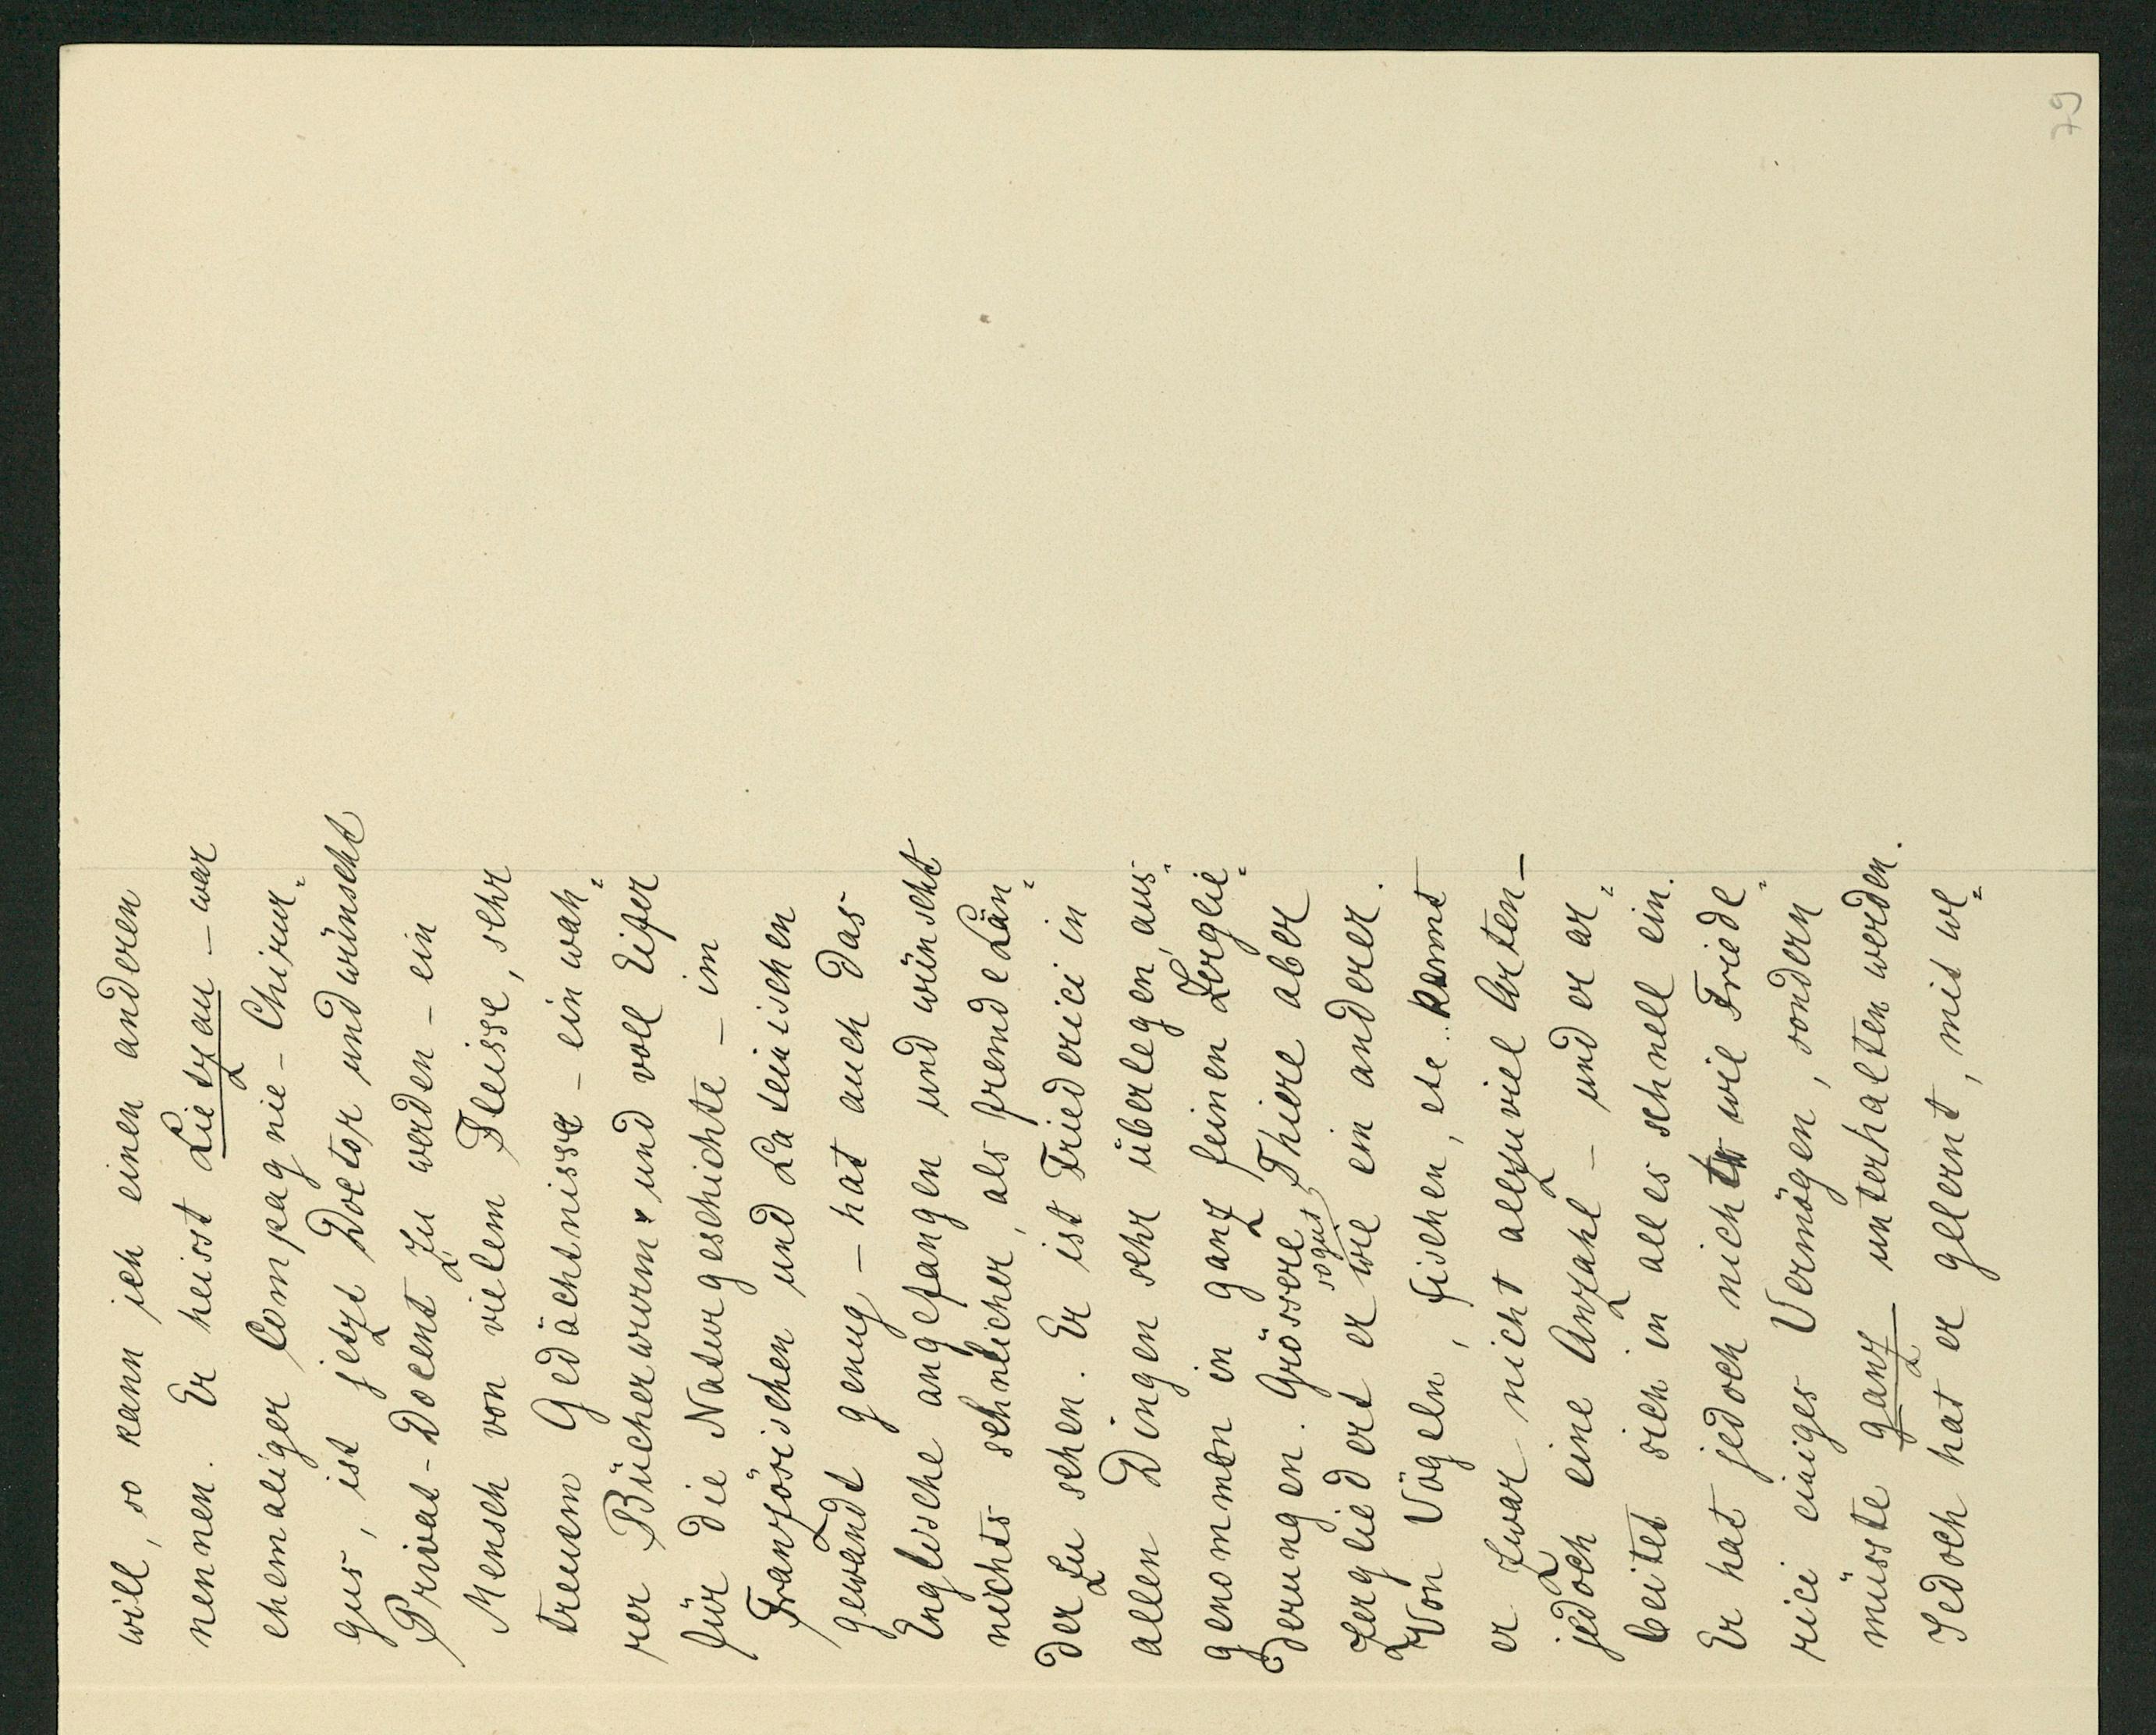 79
will, so kann ich einen anderen
nennen. Er heisst Lietzau – war
ehemaliger Compagnie-Chirur⸗
gus, ist jetzt Doctor und wünscht
Privat-Docent zu werden – ein
Mensch von vielem Fleisse, sehr
treuem Gedächtnisse – ein wah⸗
rer Bücherwurm und voll Eifer
für die Naturgeschichte – im
Französischen und Lateinischen
gewandt genug – hat auch das
Englische angefangen und wünscht
nichts sehnlicher, als fremde Län⸗
der zu sehen. Er ist Friederici in
allen Dingen sehr überlegen, aus⸗
genommen in ganz feinen Zerglie⸗
derungen. Grössere Thiere aber
zergliedert er sogut wie ein anderer.
Von Vögeln, Fischen, etc. kennt
er zwar nicht allzuviel Arten –
jedoch eine Anzahl – und er ar⸗
beitet sich in alles schnell ein.
Er hat jedoch nicht wie Friede⸗
rici einiges Vermögen, sondern
müsste ganz unterhalten werden.
Jedoch hat er gelernt, mit we⸗